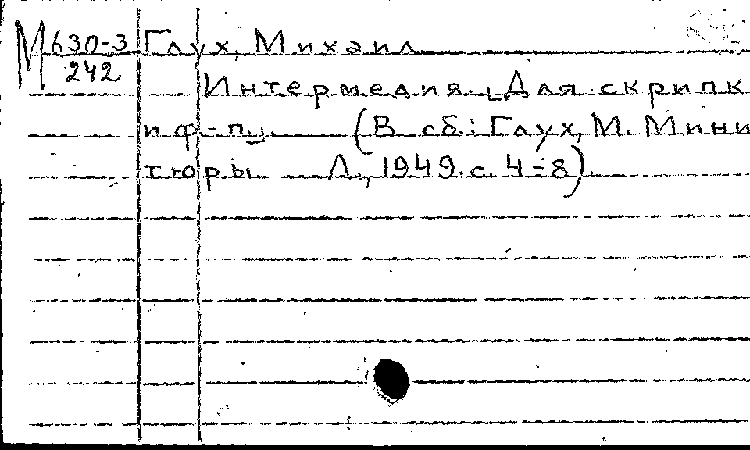 М 630-3 Глух, Михаил
242
Интермедия. [Для скрипк
и ф-п.]. (В сб.: Глух, М. Мини
тюры Л., 1949. с. 4-8)